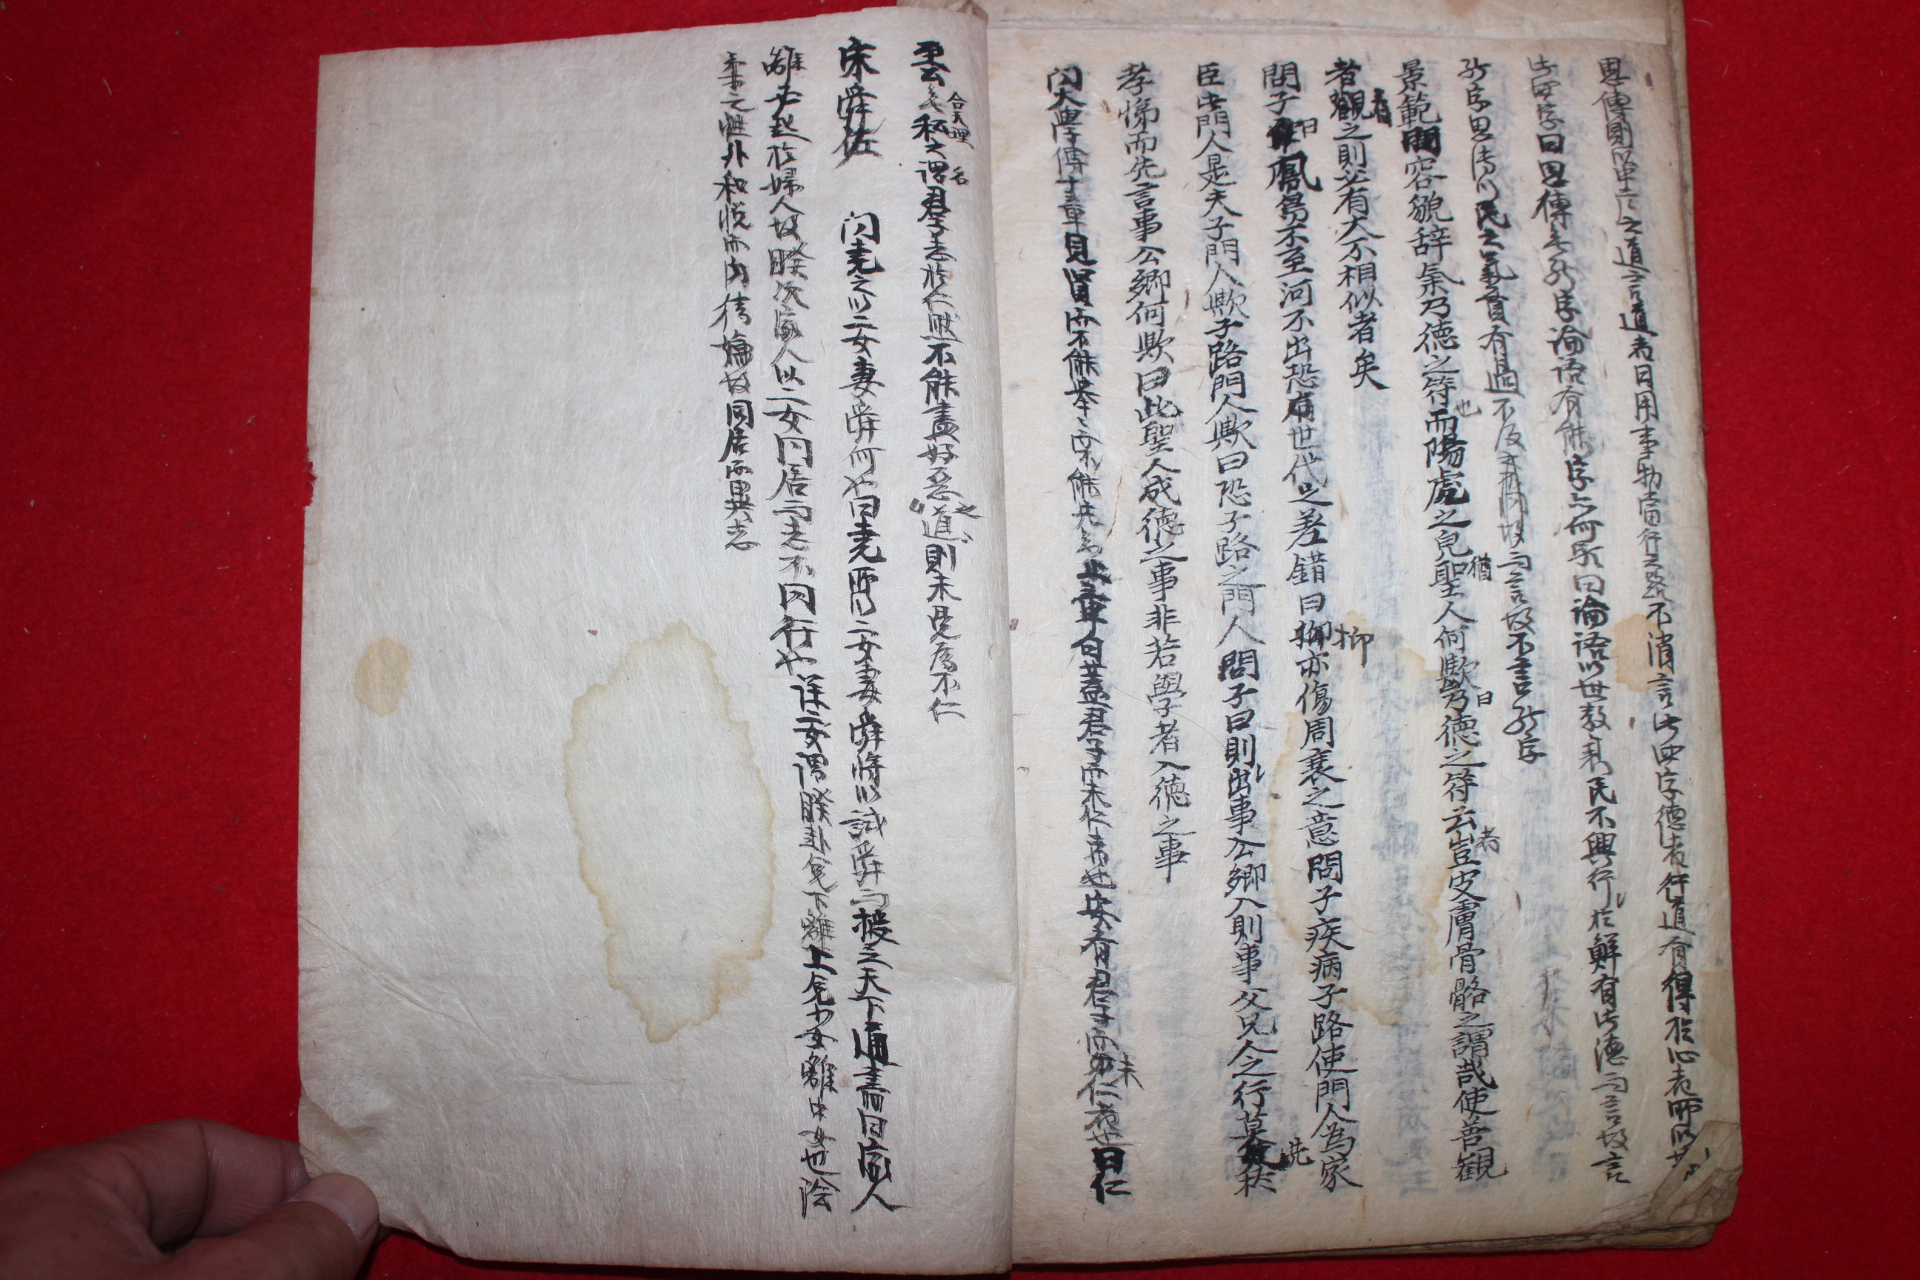 思傳則以中庸之道言道者日用事物當行之路不消言此四字德者行道有得於心者所以
此四字曰思傳 能字論語有能字亦何耶曰論語以世教衰民不興行於鮮有此德而言故言
能字思傳以民之氣質有過不及 而言故不言能字
景範問容貌辭氣乃德之符也而陽虎之皃猶聖人何歟曰乃德之符云者豈皮膚骨骼之謂哉使善觀
者觀之則必有大不相似者矣
問子曰鳳鳥不至河不出恐有世代之差錯曰抑亦傷周衰之意問子疾病子路使門人為家
臣此門人是夫子門人歟子路門人歟曰恐子路之門人問子曰則出事公卿入則事父兄人之行莫先於
孝悌而先言事公卿何歟曰此聖人成德之事非若學者入德之事
問大學傳十章見賢而不能舉舉而不能先 章曰蓋君子而未仁者也安有君子而未仁者也曰仁
至云 合天理 私之謂君子志於仁然不能盡好惡之道則未免爲不仁
宋舜佐 問堯之以二女妻舜何也曰堯 二女妻舜將以試舜而授之天下通書曰家人
離必起於婦人故睽次家人以二女同居而志不同行也詳二女謂睽卦兌下離上兌少女離中女也陰
柔之性外和悅而內猜嫌故同居而異志